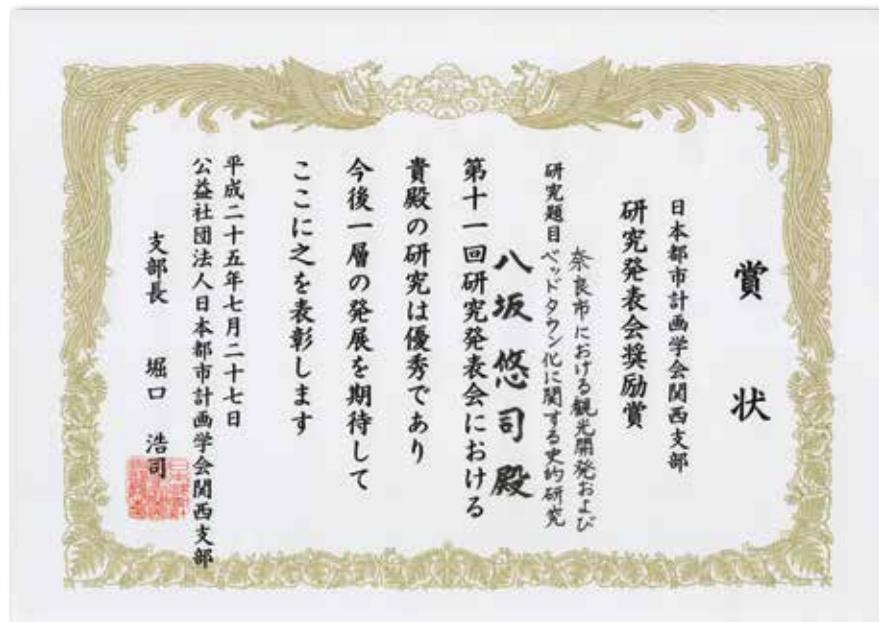 賞状
日本都市計画学会関西支部
研究発表会奨励賞
奈良市における観光開発および
研究題目ベッドタウン化に関する史的研究
八坂悠司殿
第十一回研究発表会における
貴殿の研究は優秀であり
今後一層の発展を期待して
ここに之を表彰します
平成二十五年七月二十七日
公益社団法人日本都市計画学会関西支部
支部長 堀口 浩司